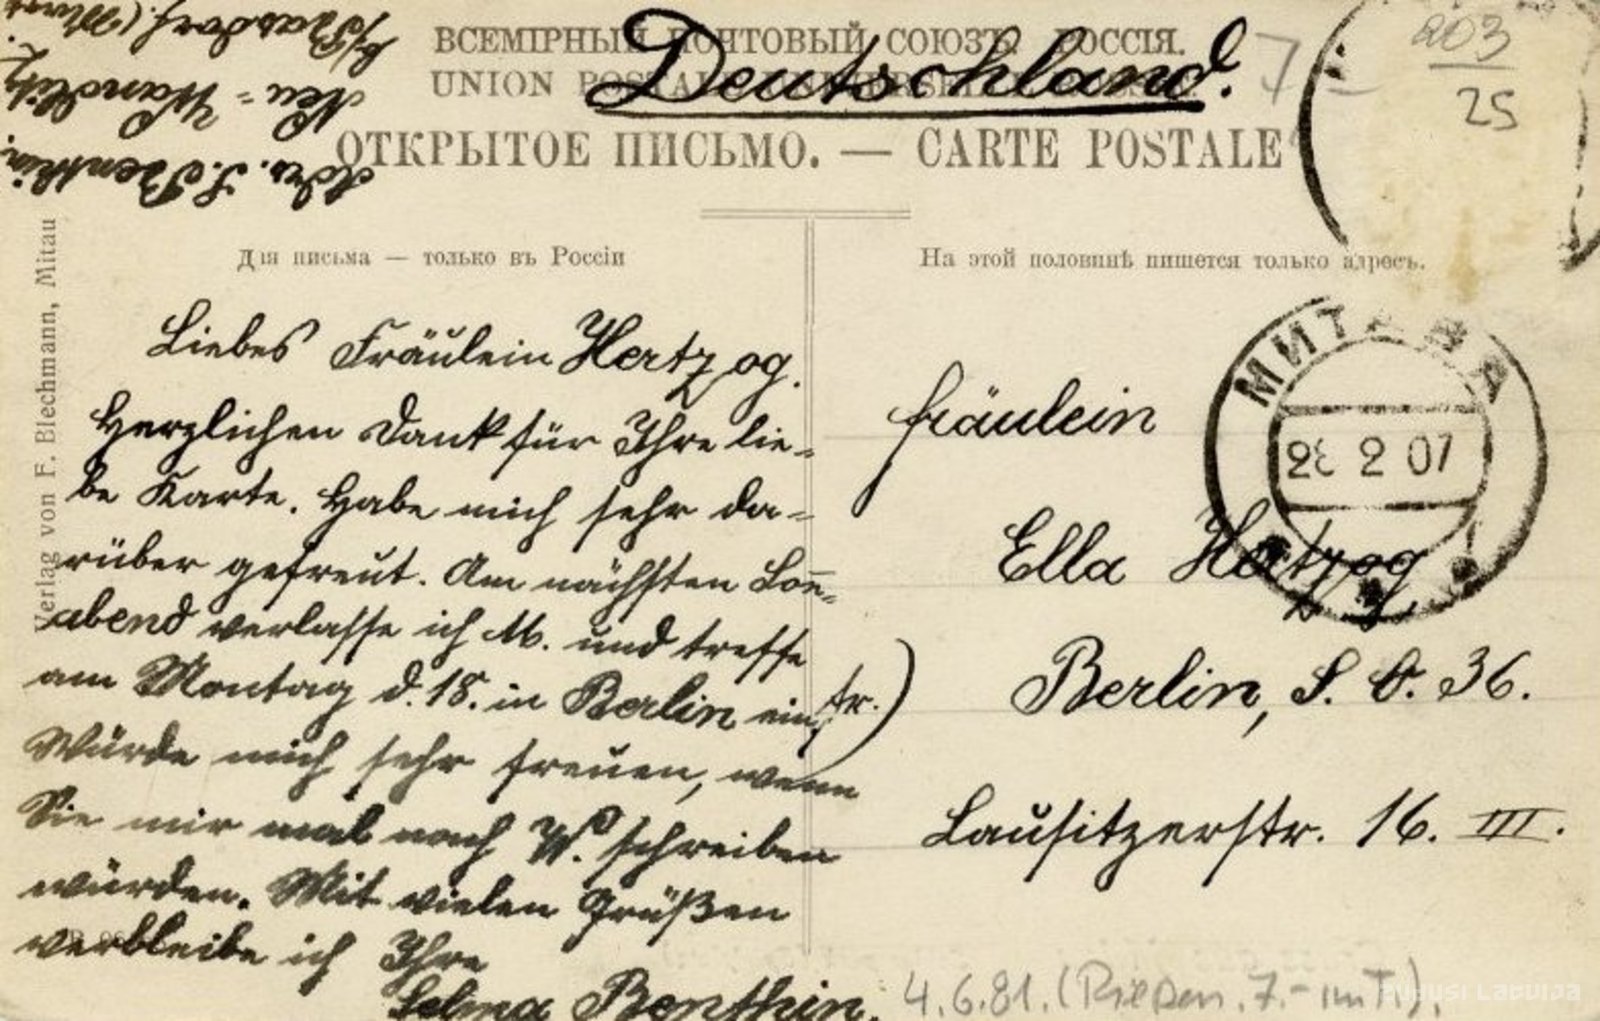 ВСЕМІРНЫЙ ПОЧТОВЫЙ СОЮЗЪ. РОССІЯ.
UNION POSTALE UNIVERSELLE
Deutschland.
ОТКРЫТОЕ ПИСЬМО. — CARTE POSTALE
203
25
Adr. S. Benthin.
Neu-Wandlitz
Verlag von F. Blechmann, Mitau
Для письма — только въ Россіи
Liebes Fräulein Hertzog.
Herzlichen Dank für Ihre lie-
be Karte. Habe mich sehr da-
rüber gefreut. Am nächsten Sonn-
abend verlasse ich M. und treffe
am Montag d. 18. in Berlin ein
Würde mich sehr freuen, wenn
Sie mir mal nach W. schreiben
würden. Mit vielen Grüßen
verbleibe ich Ihre
Selma Benthin.
На этой половинѣ пишется только адресъ.
МИТАВА
28 2 07
Fräulein
Ella Hertzog
Berlin, S. O. 36.
Lausitzerstr. 16. III.
4.6.81.